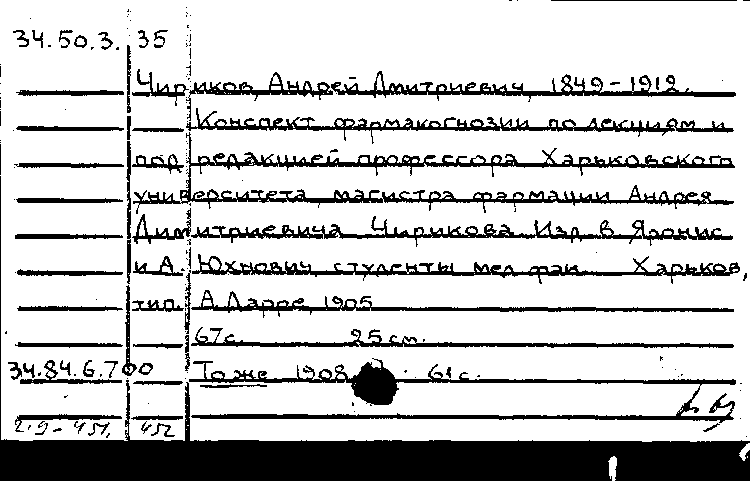 34.50.3. 35
Чириков, Андрей Дмитриевич, 1849-1912.
Конспект фармакогнозии по лекциям и
под редакцией профессора Харьковского
университета, магистра фармации Андрея
Димитриевича Чирикова. Изд. В. Яронис
и А. Юхнович студенты мед. фак. Харьков,
тип. А. Дарре, 1905
67с. 25 см.
34.84.6.700 То же 1908. 61 с.
2.9-451, 452